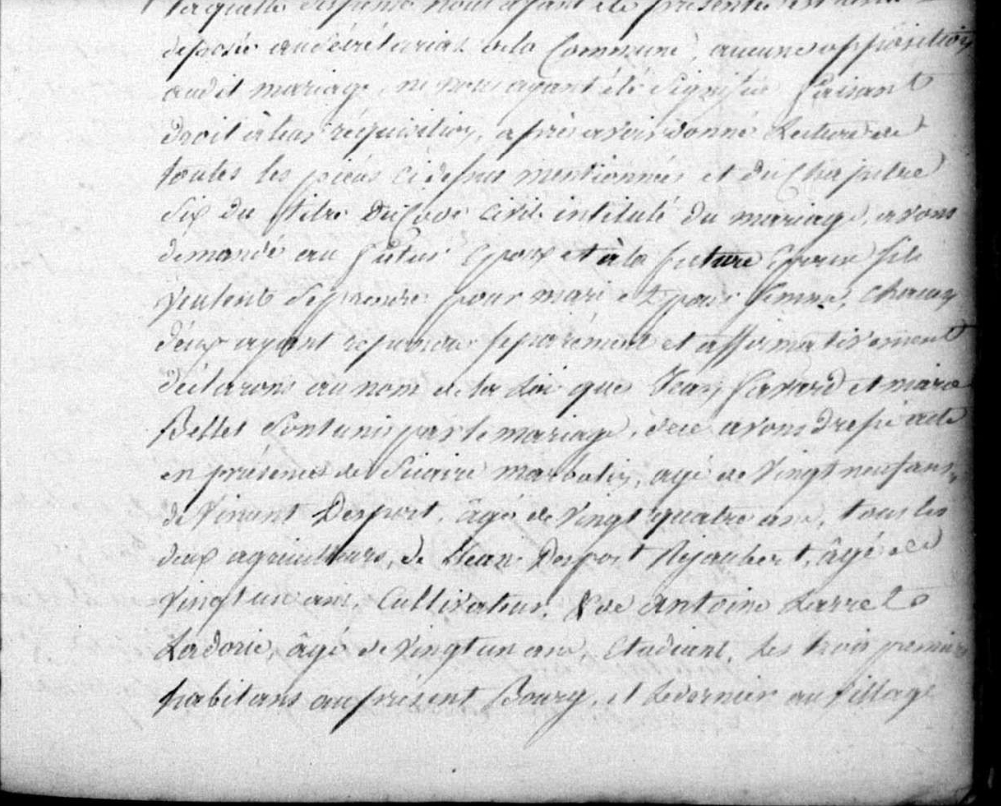 laquelle dispense nous ayant été présentée est restée
déposée au secrétariat de la Commune, aucune opposition
audit mariage, ne nous ayant été signifiée faisant
droit à leur réquisition, après avoir donné Lecture de
toutes les pièces ci dessus mentionnées et du Chapitre
Six du titre Du Code Civil intitulé du mariage, avons
demandé au futur époux et à la future épouse s'ils
veulent se prendre pour mari et pour femme, chacun
d'eux ayant répondu séparément et affirmativement
déclarons au nom de la Loi que Jean Savard et marie
Bellet sont unis par le mariage, de ce avons dressé acte
en présence de marbotin, agé de vingt neuf ans,
de Vincent Desport, âgé de vingt quatre ans, tous les
deux agriculteurs, de Jean Desport Rejaubert, âgé de
vingt un ans, Cultivateur, & de antoine Larret
Ladorie, âgé de vingt un ans, étudiant, les trois premiers
habitans au présent Bourg, et le dernier au village